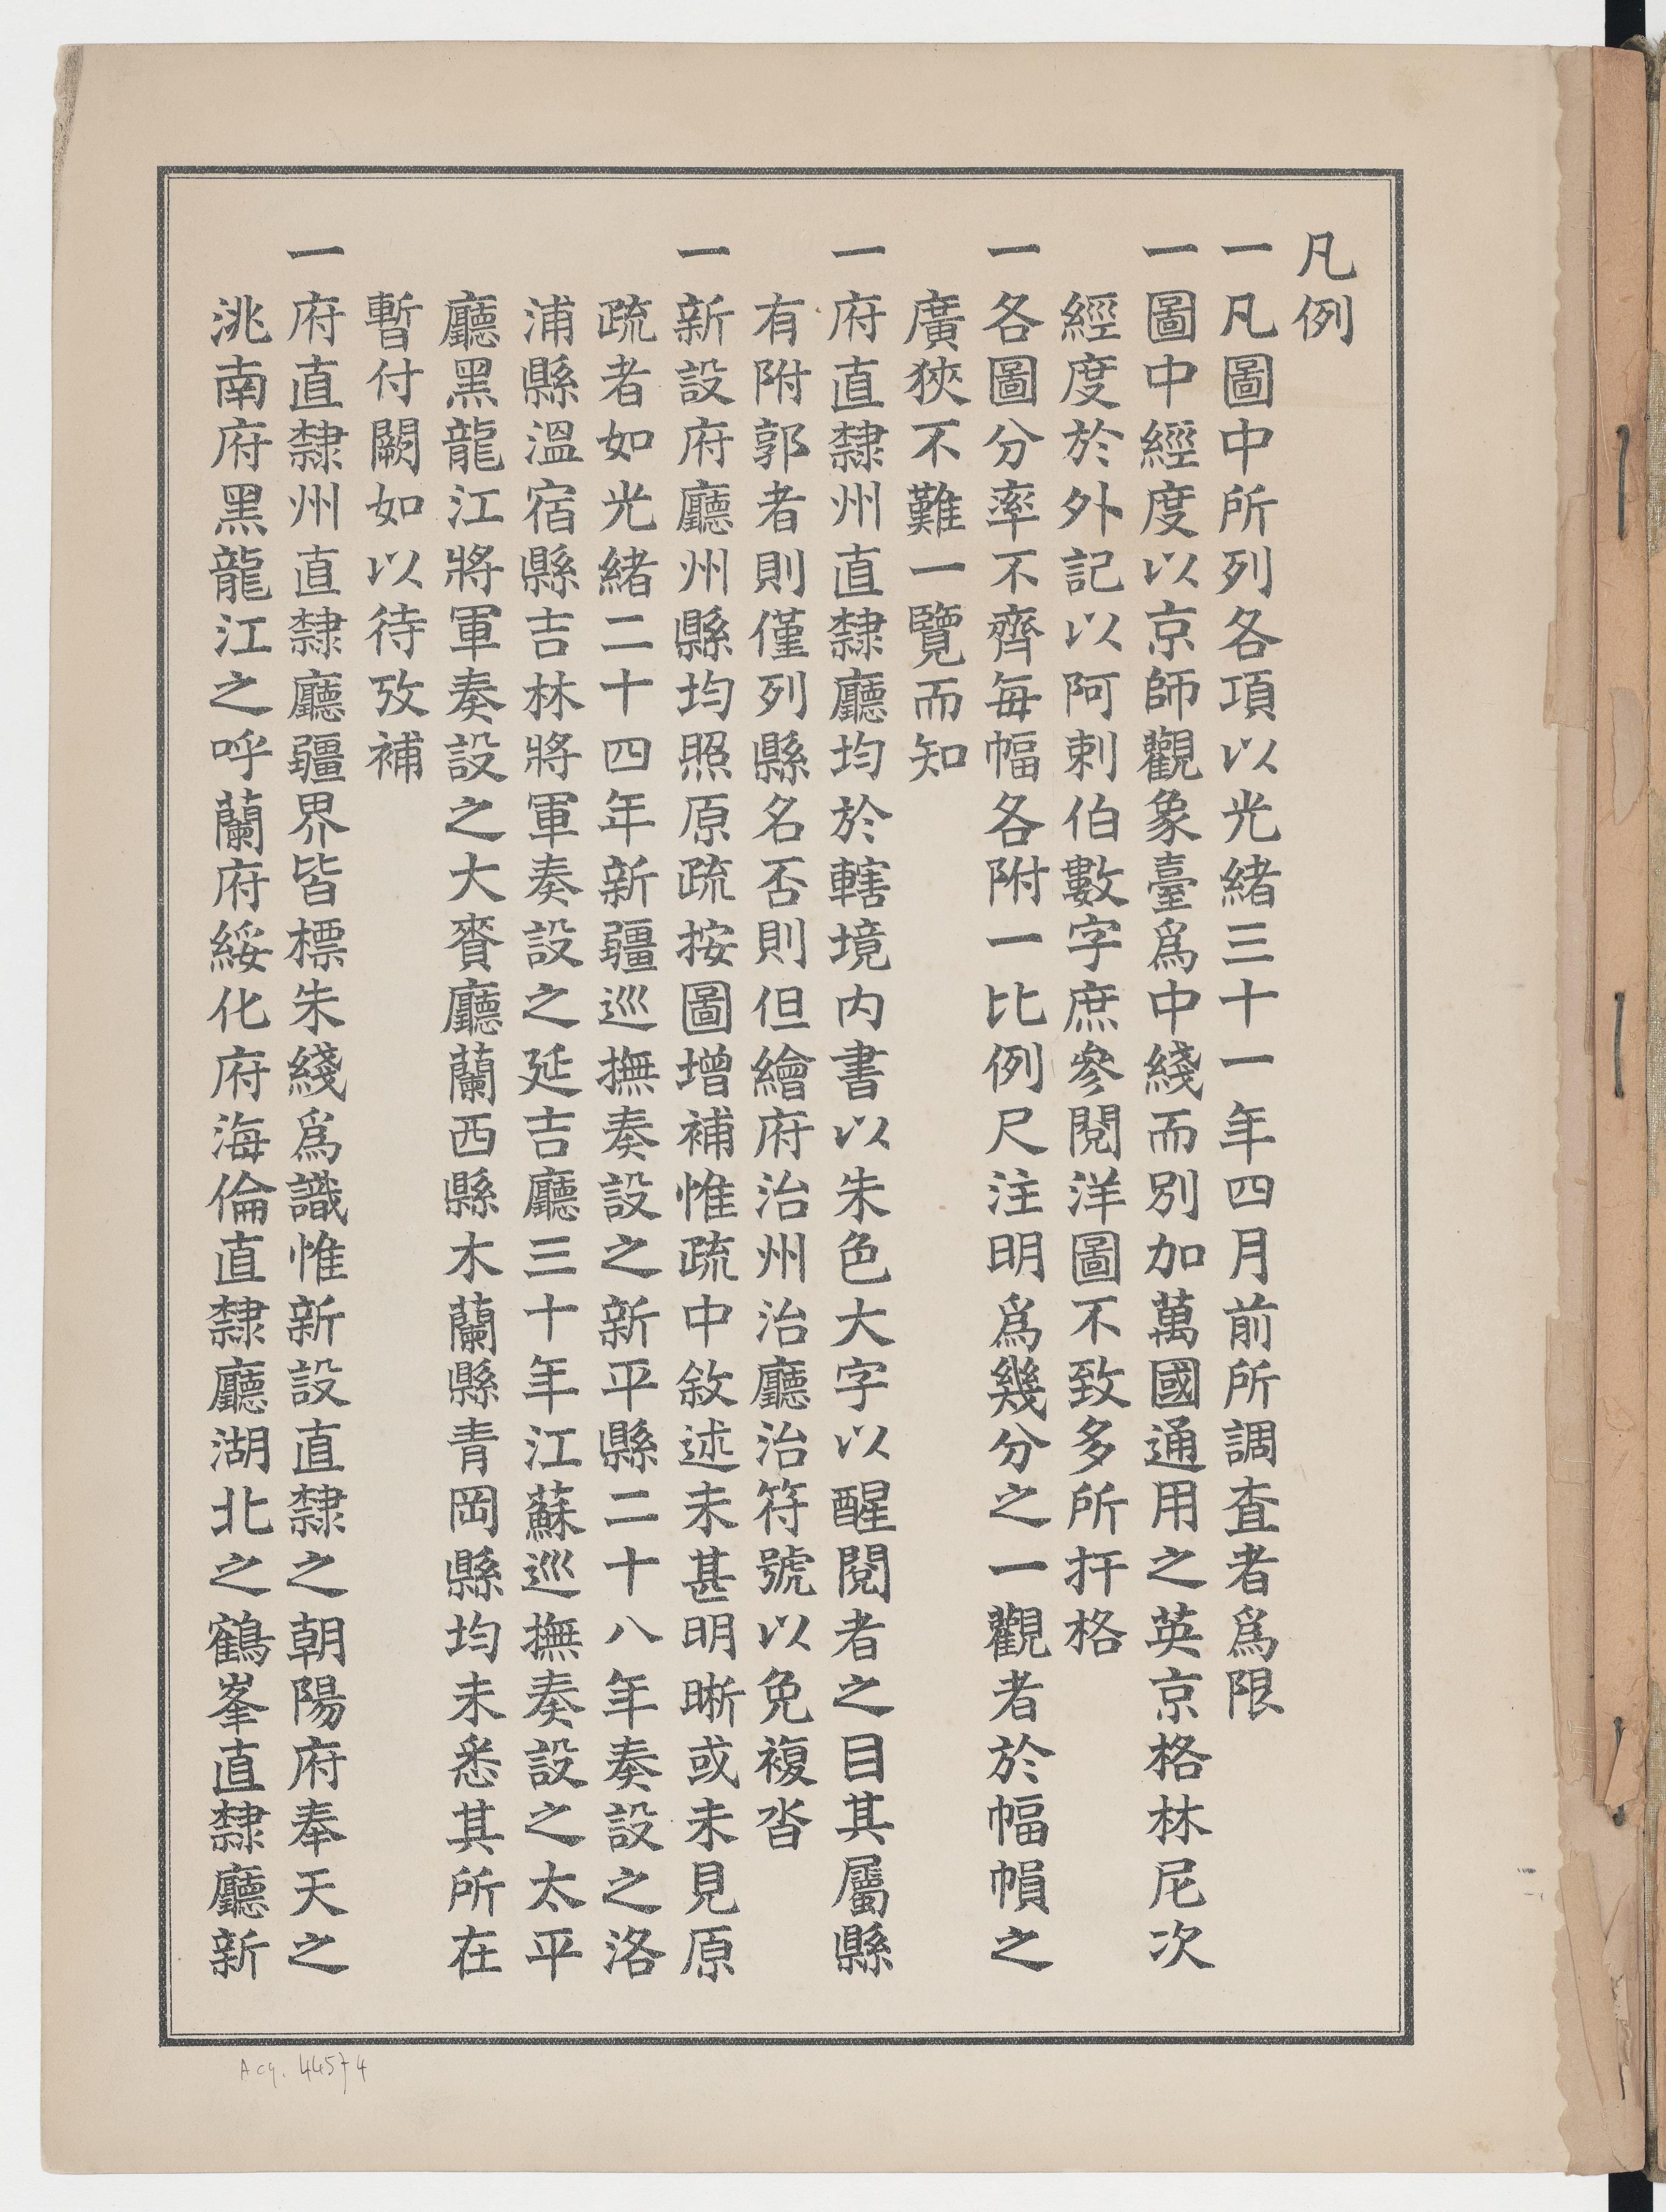 凡例
一凡圖中所列各項以光緒三十一年四月前所調查者爲限
一圖中經度以京師觀象臺爲中綫而別加萬國通用之英京格林尼次
經度於外記以阿剌伯數字庶參閱洋圖不致多所扞格
一各圖分率不齊每幅各附一比例尺注明爲幾分之一觀者於幅幀之
廣狹不難一覽而知
一府直隸州直隸廳均於轄境内書以朱色大字以醒閱者之目其屬縣
有附郭者則僅列縣名否則但繪府治州治廳治符號以免複沓
一新設府廳州縣均照原疏按圖增補惟疏中敘述未甚明晰或未見原
疏者如光緒二十四年新疆巡撫奏設之新平縣二十八年奏設之洛
浦縣溫宿縣吉林將軍奏設之延吉廳三十年江蘇巡撫奏設之太平
廳黑龍江將軍奏設之大賚廳蘭西縣木蘭縣青岡縣均未悉其所在
暫付闕如以待攷補
一府直隸州直隸廳疆界皆標朱綫爲識惟新設直隸之朝陽府奉天之
洮南府黑龍江之呼蘭府綏化府海倫直隸廳湖北之鶴峯直隸廳新
Acq. 44574